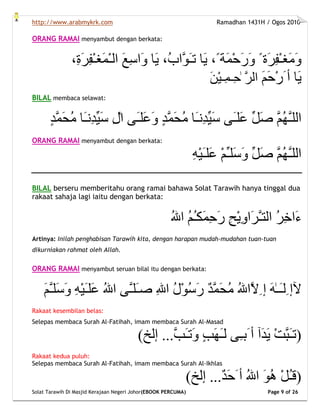 http://www.arabmykrk.com Ramadhan 1431H / Ogos 2010
ORANG RAMAI menyambut dengan berkata:
وَمَغْفِرَةً وَرَحْمَةً، يَا تَوَّابُ، يَا وَاسِعَ الْمَغْفِرَةِ،
يَا أَرْحَمَ الرَّٰحِمِيْنَ
BILAL membaca selawat:
اللَّهُمَّ صَلِّ عَلَى سَيِّدِنَا مُحَمَّدٍ وَعَلَى آلِ سَيِّدِنَا مُحَمَّدٍ
ORANG RAMAI menyambut dengan berkata:
اللَّهُمَّ صَلِّ وَسَلِّمْ عَلَيْهِ
BILAL berseru memberitahu orang ramai bahawa Solat Tarawih hanya tinggal dua
rakaat sahaja lagi iaitu dengan berkata:
ءَاخِرُ التَّرَاوِيْحِ رَحِمَكُمُ اللهُ
Artinya: Inilah penghabisan Tarawih kita, dengan harapan mudah-mudahan tuan-tuan
dikurniakan rahmat oleh Allah.
ORANG RAMAI menyambut seruan bilal itu dengan berkata:
لَآإِلَـٰهَ إِلَّااللهُ مُحَمَّدٌ رَسُوْلُ اللهِ صَلَّى اللهُ عَلَيْهِ وَسَلَّمَ
Rakaat kesembilan belas:
Selepas membaca Surah Al-Fatihah, imam membaca Surah Al-Masad
(تَبَّتْ يَدَآ أَبِى لَهَبٍ وَتَبَّ... إلخ)
Rakaat kedua puluh:
Selepas membaca Surah Al-Fatihah, imam membaca Surah Al-Ikhlas
(قُلْ هُوَ اللهُ أَحَدٌ... إلخ)
Solat Tarawih Di Masjid Kerajaan Negeri Johor(EBOOK PERCUMA) Page 9 of 26